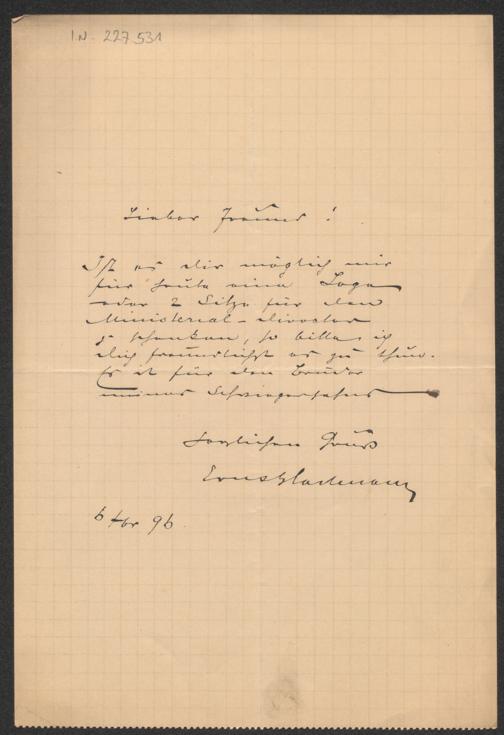 I.N. 227.531
Lieber Freund!
Ist es dir möglich mir
für heute eine Loge
oder 2 Sitze für den
Ministerial-Director
zu schenken, so bitte ich
dich freundlichst es zu thun.
Es ist für den Bruder
meines Schwiegersohnes
Herzlichen Gruß
Ernst
6 96